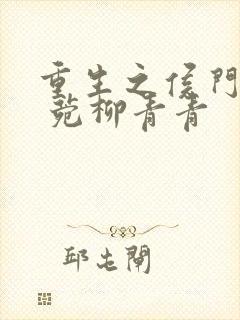 重生之侯門
菀柳青青
邱屯閘